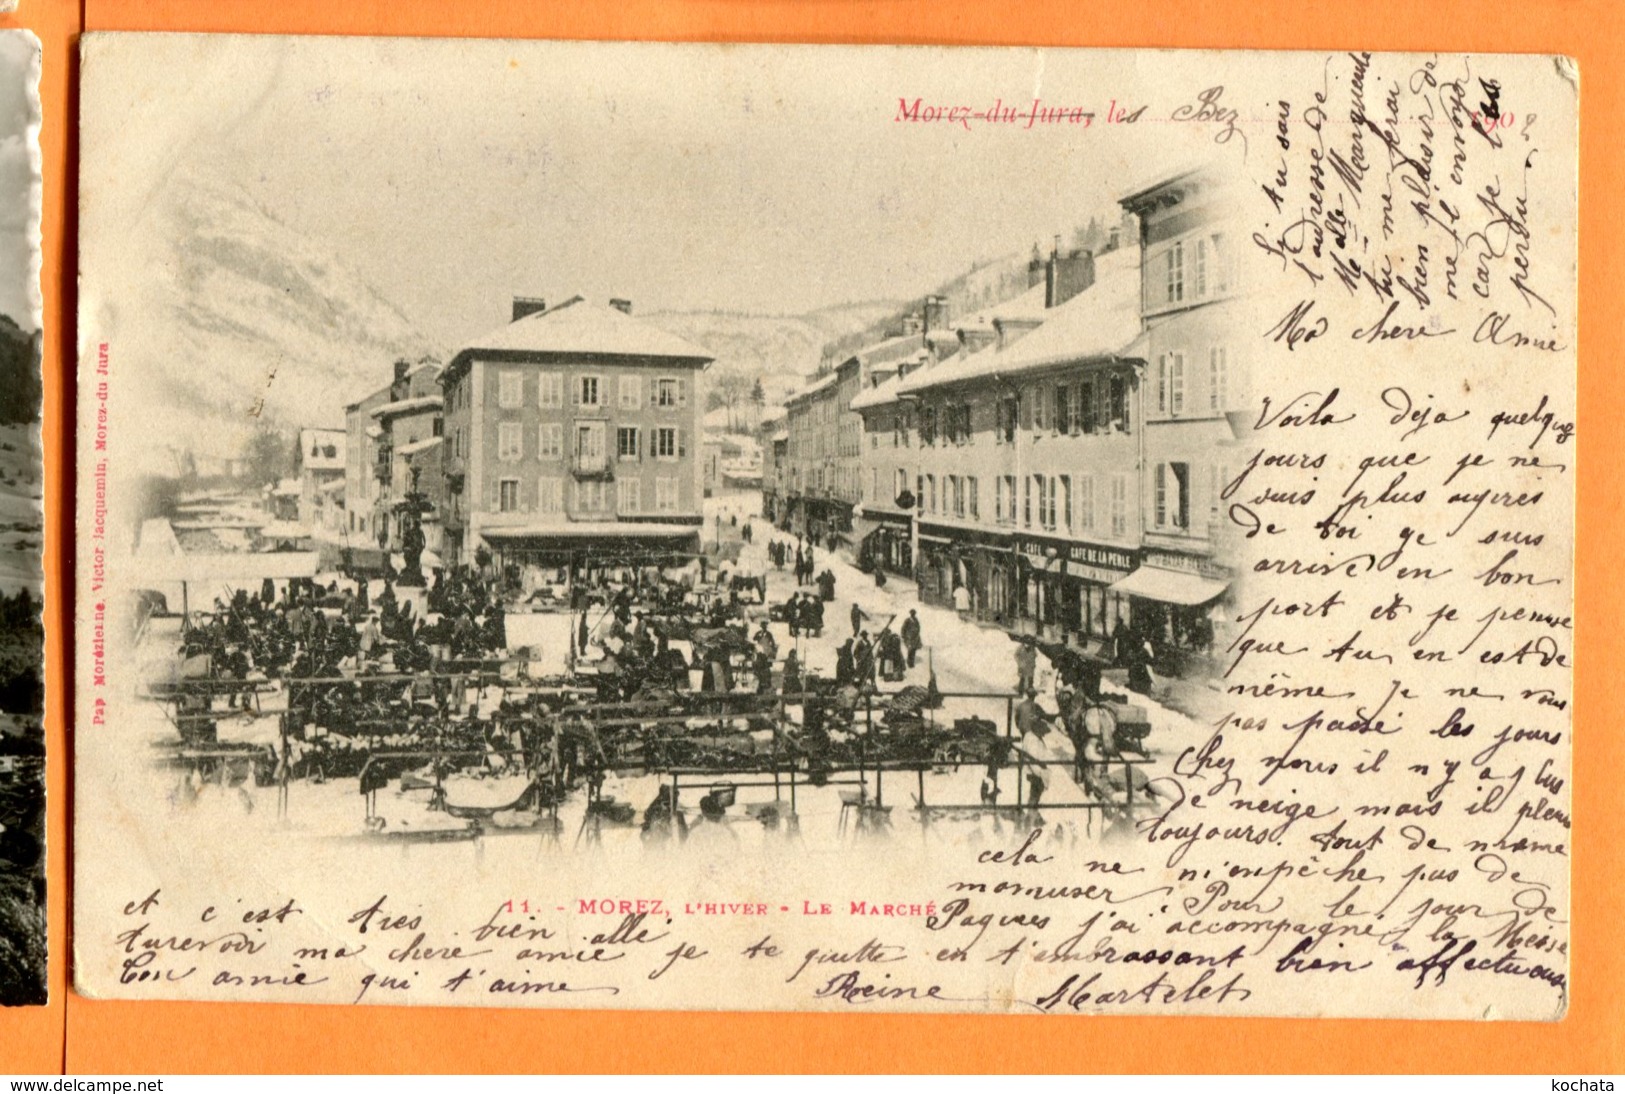 Morez-du-Jura, les Bez 190
Si tu sais
l'adresse de
Melle Marguerite
tu me ferai
bien plaisir de
me l'envoyer
car je l'es
perdu.
Ma chere Amie
Voila deja quelques
jours que je ne
suis plus aupres
de toi ge suis
arrivé en bon
port et je pense
que tu en est de
même. Je ne vous
pas passé les jours
Chez nous il n'y a plus
de neige mais il pleut
toujours. tout de meme
cela ne m'enpêche pas de
mamuser. Pour le jour de
Paques j'ai accompagné la Messe
et c'est tres bien allé
turevoir ma chere amie je te quitte en t'embrassant bien affectueus
Ton amie qui t'aime Reine Martelet
11. - MOREZ, L'HIVER - LE MARCHÉ
Pap Morézienne, Victor Jacquemin, Morez-du Jura
CAFE
CAFE DE LA PERLE
www.delcampe.net
kochata